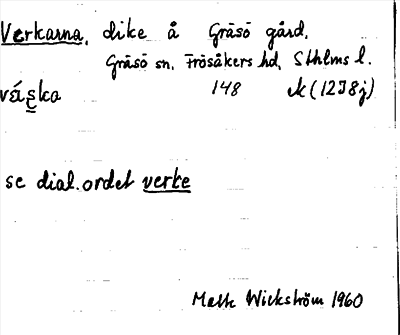 Verkarna, dike å Gräsö gård,
Gräsö sn, Frösåkers hd, Sthlms l.
148 ek (12J8j)
se dial.ordet verke
Matts Wickström 1960